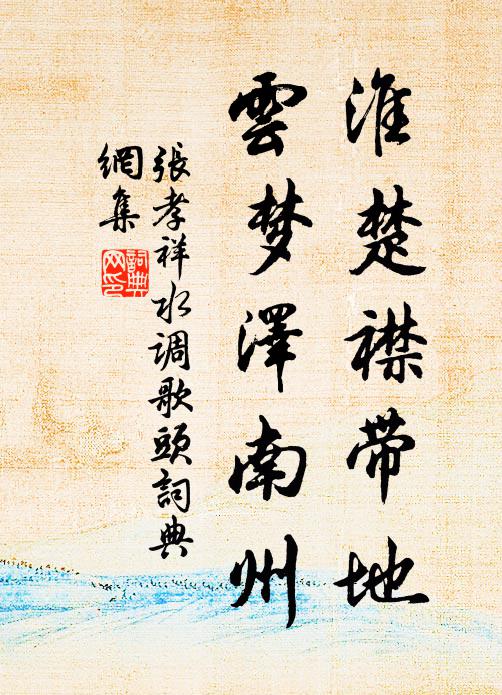 淮楚襟带地
雲梦澤南州
張孝祥水调歌頭詞典
網集
詞典网印